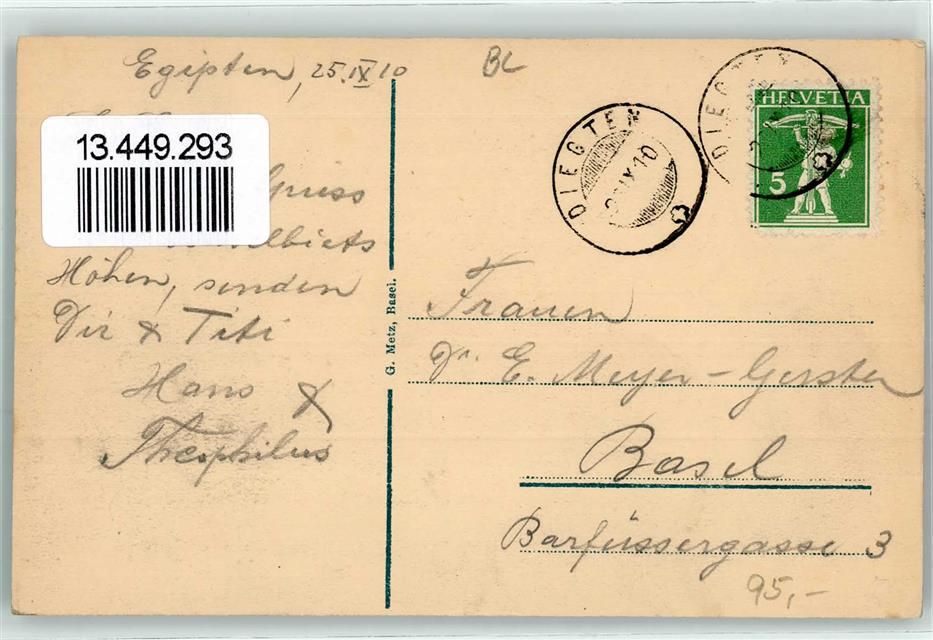 Egipten, 25.IX 10
BL
13.449.293
Gruss
Höhen, senden
Dir & Titi
Hans &
Theophilus
G. Metz, Basel.
DIEGTEN
IX.10
DIEGTEN
HELVETIA
5
Frauen
Dr. E. Meyer-Gerster
Basel
Barfüssergasse 3
95,-